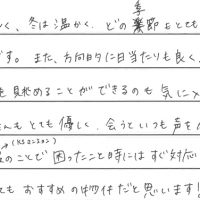 季
く、冬は温かく、どの 節もとても
です。また、方向的に日当たりも良く、
も眺めることができるのも気に入
さんもとても優しく、会うといつも声を
(KSマンション)
のことで困ったこと時にはすぐ対応
ても おすすめの物件だと思います!